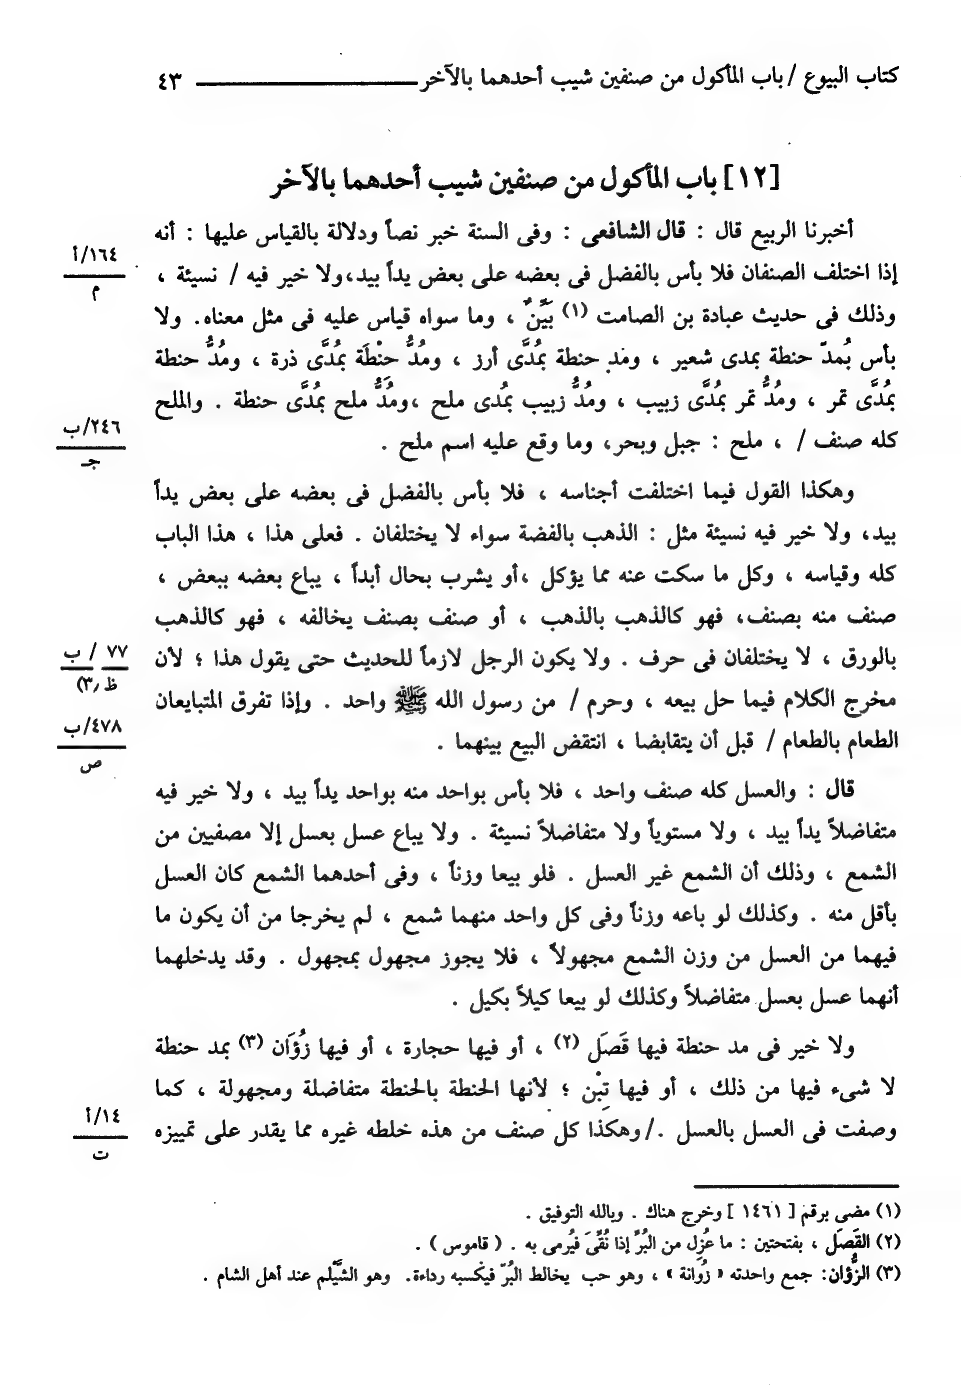 كتاب البيوع / باب المأكول من صنفين شيب أحدهما بالآخر ـــــــــ ٤٣
[١٢] باب المأكول من صنفين شيب أحدهما بالآخر
أخبرنا الربيع قال : قال الشافعى : وفى السنة خبر نصاً ودلالة بالقياس عليها : أنه
١٦٤/أ
م
إذا اختلف الصنفان فلا بأس بالفضل فى بعضه على بعض يداً بيد،ولا خير فيه / نسيئة ،
وذلك فى حديث عبادة بن الصامت (١) بَيِّنٌ ، وما سواه قياس عليه فى مثل معناه. ولا
بأس بُمدّ حنطة بمدى شعير ، ومُد حنطة بمُدَّى أرز ، ومُدُّ حنْطَة بمُدَّى ذرة ، ومُدُّ حنطة
بمُدَّى تمر ، ومُدُّ تمر بمُدَّى زبيب ، ومُدُّ زبيب بمُدى ملح ،ومُدَُّ ملح بمُدَّى حنطة . والملح
٢٤٦/ب
جـ
كله صنف / ، ملح : جبل وبحر، وما وقع عليه اسم ملح .
وهكذا القول فيما اختلفت أجناسه ، فلا بأس بالفضل فى بعضه على بعض يداً
بيد، ولا خير فيه نسيئة مثل : الذهب بالفضة سواء لا يختلفان . فعلى هذا ، هذا الباب
كله وقياسه ، وكل ما سكت عنه مما يؤكل ،أو يشرب بحال أبداً ، يباع بعضه ببعض ،
صنف منه بصنف، فهو كالذهب بالذهب ، أو صنف بصنف يخالفه ، فهو كالذهب
٧٧ / ب
ظ (٣)
بالورق ، لا يختلفان فى حرف . ولا يكون الرجل لازماً للحديث حتى يقول هذا ؛ لأن
مخرج الكلام فيما حل بيعه ، وحرم / من رسول الله ﷺ واحد . وإذا تفرق المتبايعان
٤٧٨/ب
ص
الطعام بالطعام / قبل أن يتقابضا ، انتقض البيع بينهما .
قال : والعسل كله صنف واحد ، فلا بأس بواحد منه بواحد يداً بيد ، ولا خير فيه
متفاضلاً يداً بيد ، ولا مستوياً ولا متفاضلاً نسيئة . ولا يباع عسل بعسل إلا مصفيين من
الشمع ، وذلك أن الشمع غير العسل . فلو بيعا وزناً ، وفى أحدهما الشمع كان العسل
بأقل منه . وكذلك لو باعه وزناً وفى كل واحد منهما شمع ، لم يخرجا من أن يكون ما
فيهما من العسل من وزن الشمع مجهولاً ، فلا يجوز مجهول بمجهول . وقد يدخلهما
أنهما عسل بعسل متفاضلاً وكذلك لو بيعا كيلاً بكيل .
ولا خير فى مد حنطة فيها قَصَل (٢) ، أو فيها حجارة ، أو فيها زُؤَان (٣) بمد حنطة
لا شىء فيها من ذلك ، أو فيها تِبْن ؛ لأنها الحنطة بالحنطة متفاضلة ومجهولة ، كما
١٤/أ
ت
وصفت فى العسل بالعسل ./ وهكذا كل صنف من هذه خلطه غيره مما يقدر على تمييزه
(١) مضى برقم [ ١٤٦١ ] وخرج هناك . وبالله التوفيق .
(٢) القَصَل ، بفتحتين : ما عُزِل من البُرِّ إذا نُقِّىَ فيُرمى به . ( قاموس ) .
(٣) الزُّؤان: جمع واحدته « زُوَانة » ، وهو حب يخالط البُرّ فيكسبه رداءة. وهو الشَّيْلم عند أهل الشام .